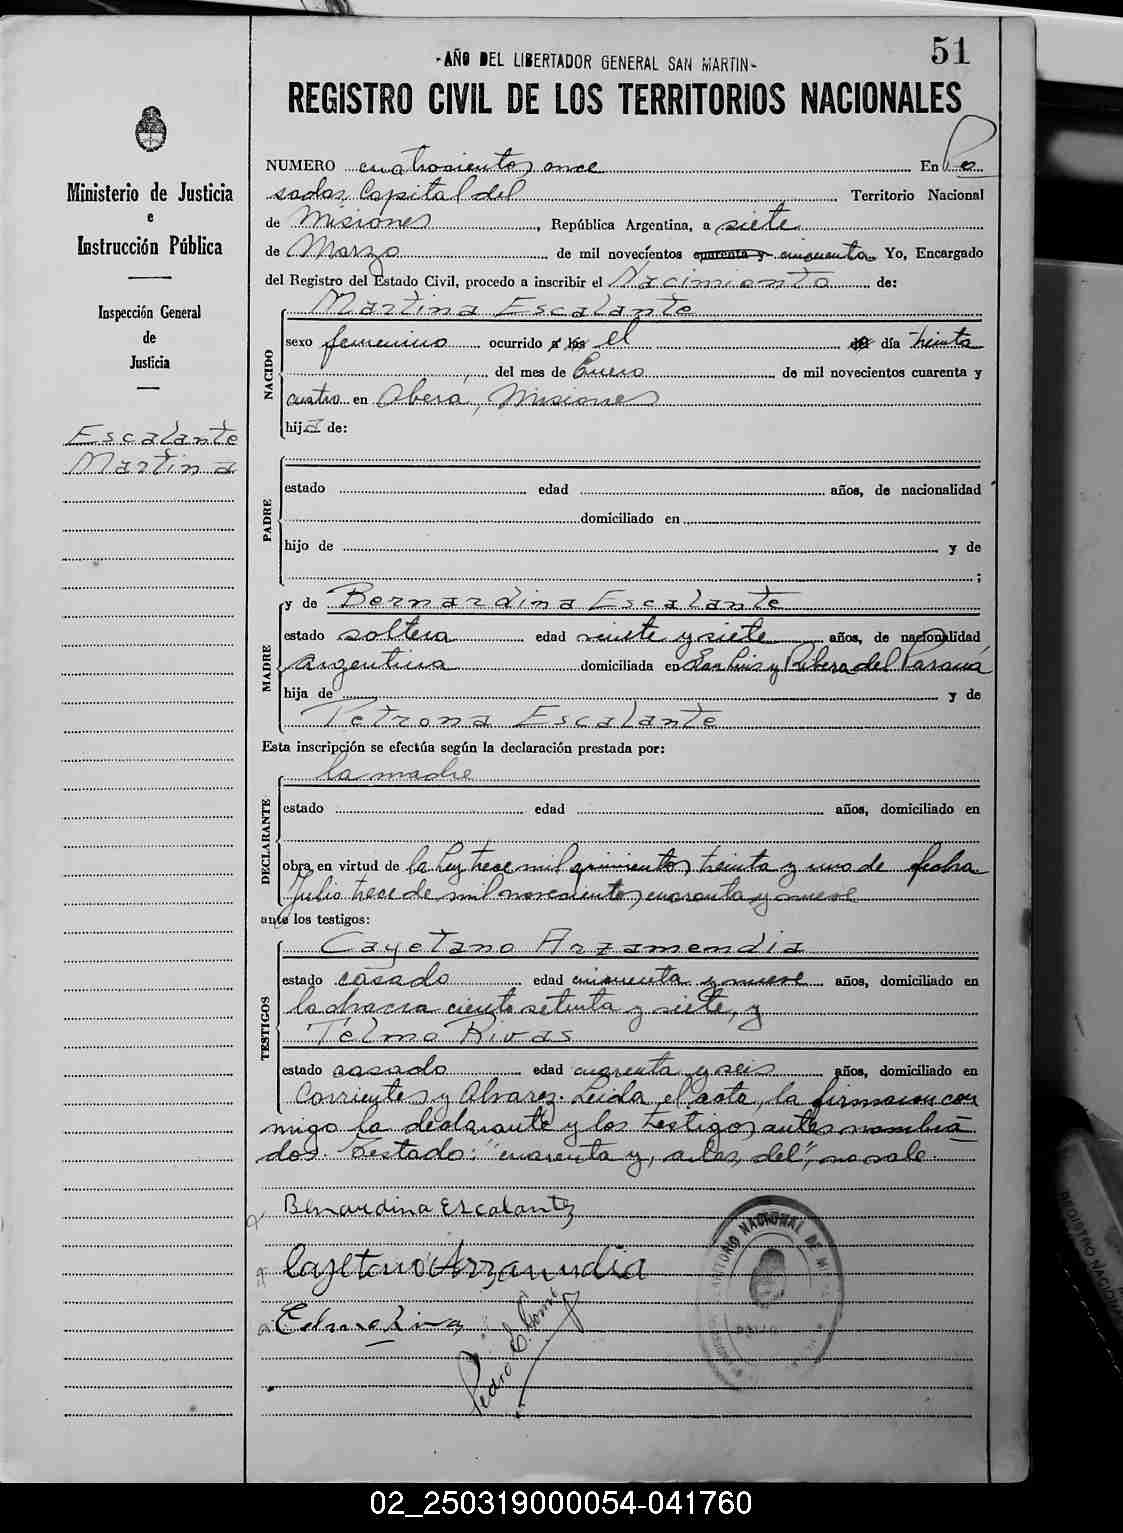 51
-AÑO DEL LIBERTADOR GENERAL SAN MARTIN-
REGISTRO CIVIL DE LOS TERRITORIOS NACIONALES
Ministerio de Justicia
e
Instrucción Pública
Inspección General
de
Justicia
Escalante
Martina
NUMERO cuatrocientos once En Po
sadas, Capital del Territorio Nacional
de Misiones, República Argentina, a siete
de Marzo de mil novecientos cuarenta y cincuenta Yo, Encargado
del Registro del Estado Civil, procedo a inscribir el Nacimiento de:
NACIDO
Martina Escalante
sexo femenino ocurrido a las el del día treinta
del mes de Enero de mil novecientos cuarenta y
cuatro en Obera, Misiones
hija de:
PADRE
estado edad años, de nacionalidad
domiciliado en
hijo de y de
;
MADRE
y de Bernardina Escalante
estado soltera edad veinte y siete años, de nacionalidad
argentina domiciliada en San Luis y Ribera del Paraná
hija de y de
Petrona Escalante
Esta inscripción se efectúa según la declaración prestada por:
DECLARANTE
la madre
estado edad años, domiciliado en
obra en virtud de la Ley trece mil quinientos treinta y uno de fecha
Julio trece de mil novecientos cuarenta y nueve
ante los testigos:
TESTIGOS
Cayetano Arzamendia
estado casado edad cincuenta y nueve años, domiciliado en
la chacra ciento setenta y siete, y
Telmo Rivas
estado casado edad cuarenta y seis años, domiciliado en
Corrientes y Alvarez. Leida el acta, la firmaron con
migo la declarante y los testigos antes nombra
dos. Testado: "cuarenta y, a las, del", no vale.
Bernardina Escalante
Cayetano Arzamendia
Pedro
REGISTRO NACIONAL
02_250319000054-041760